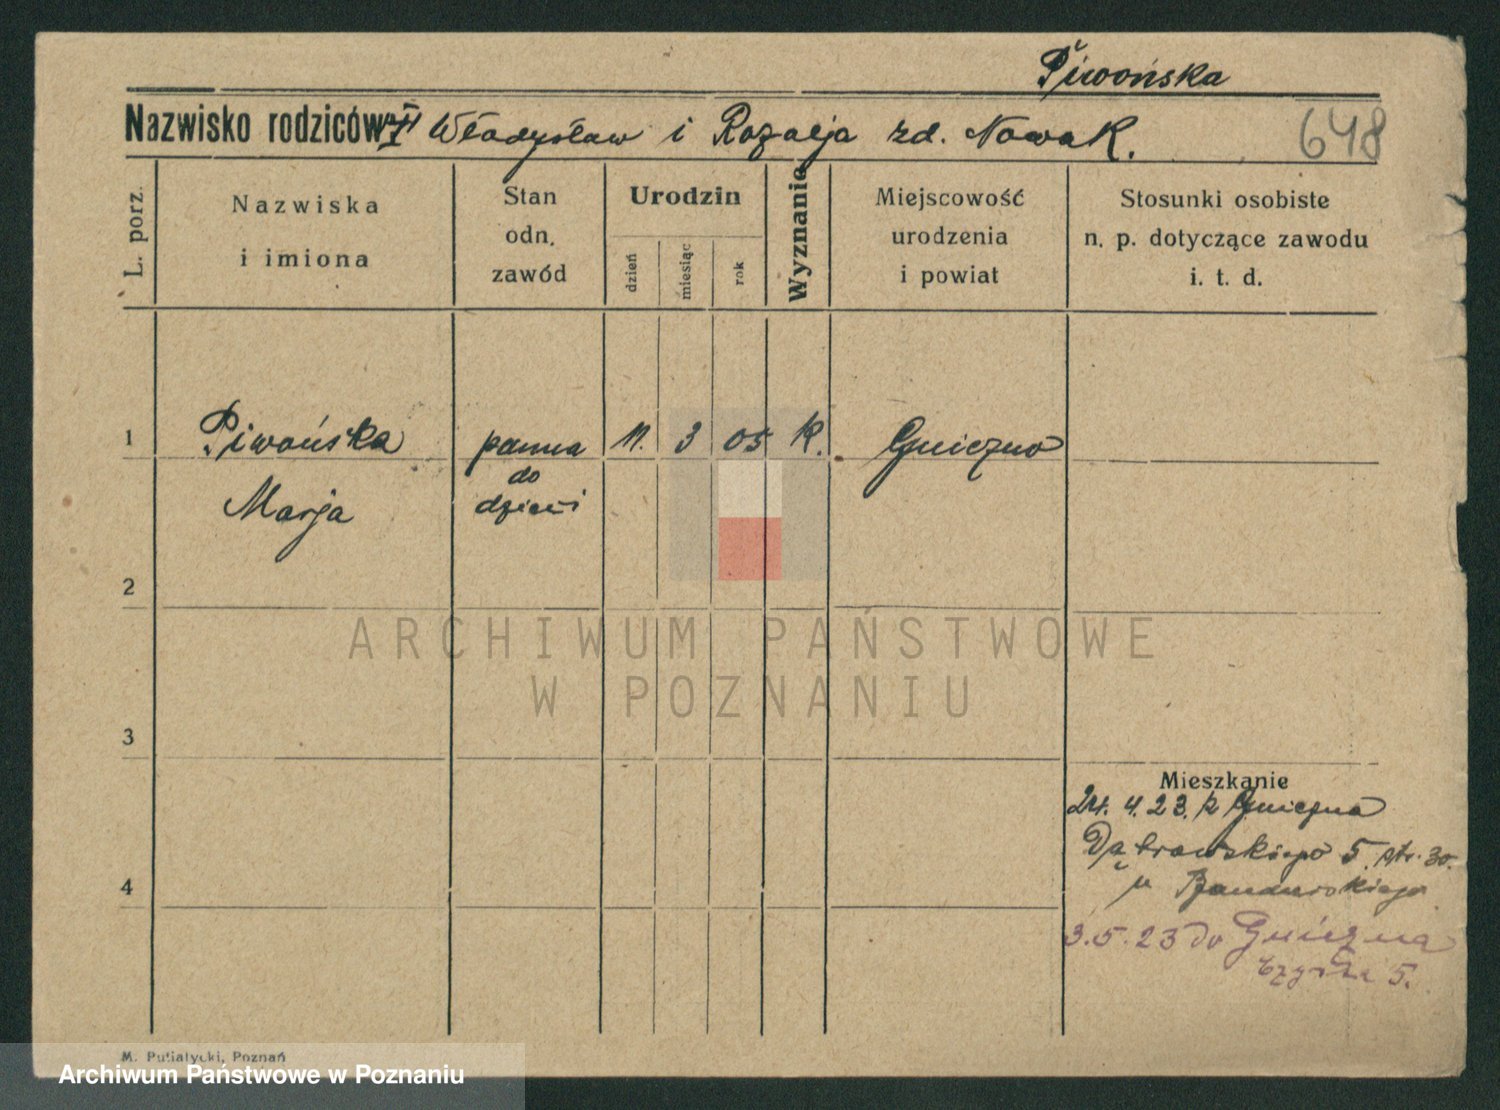 Piwońska
Nazwisko rodziców: Władysław i Rozalja zd. Nowak.
648
L. porz.
Nazwiska
i imiona
Stan
odn.
zawód
Urodzin
dzień
miesiąc
rok
Wyznanie
Miejscowość
urodzenia
i powiat
Stosunki osobiste
n. p. dotyczące zawodu
i. t. d.
1 Piwońska panna 11. 3 05 k. Gniezno
do
Marja dzieci
2
ARCHIWUM PAŃSTWOWE
W POZNANIU
3
Mieszkanie
24. 4. 23. z Gniezna
Dąbrowskiego 5. ptr. 30.
u
4
3.5.23 do Gniezna
5.
M. Putiatycki, Poznań
Archiwum Państwowe w Poznaniu